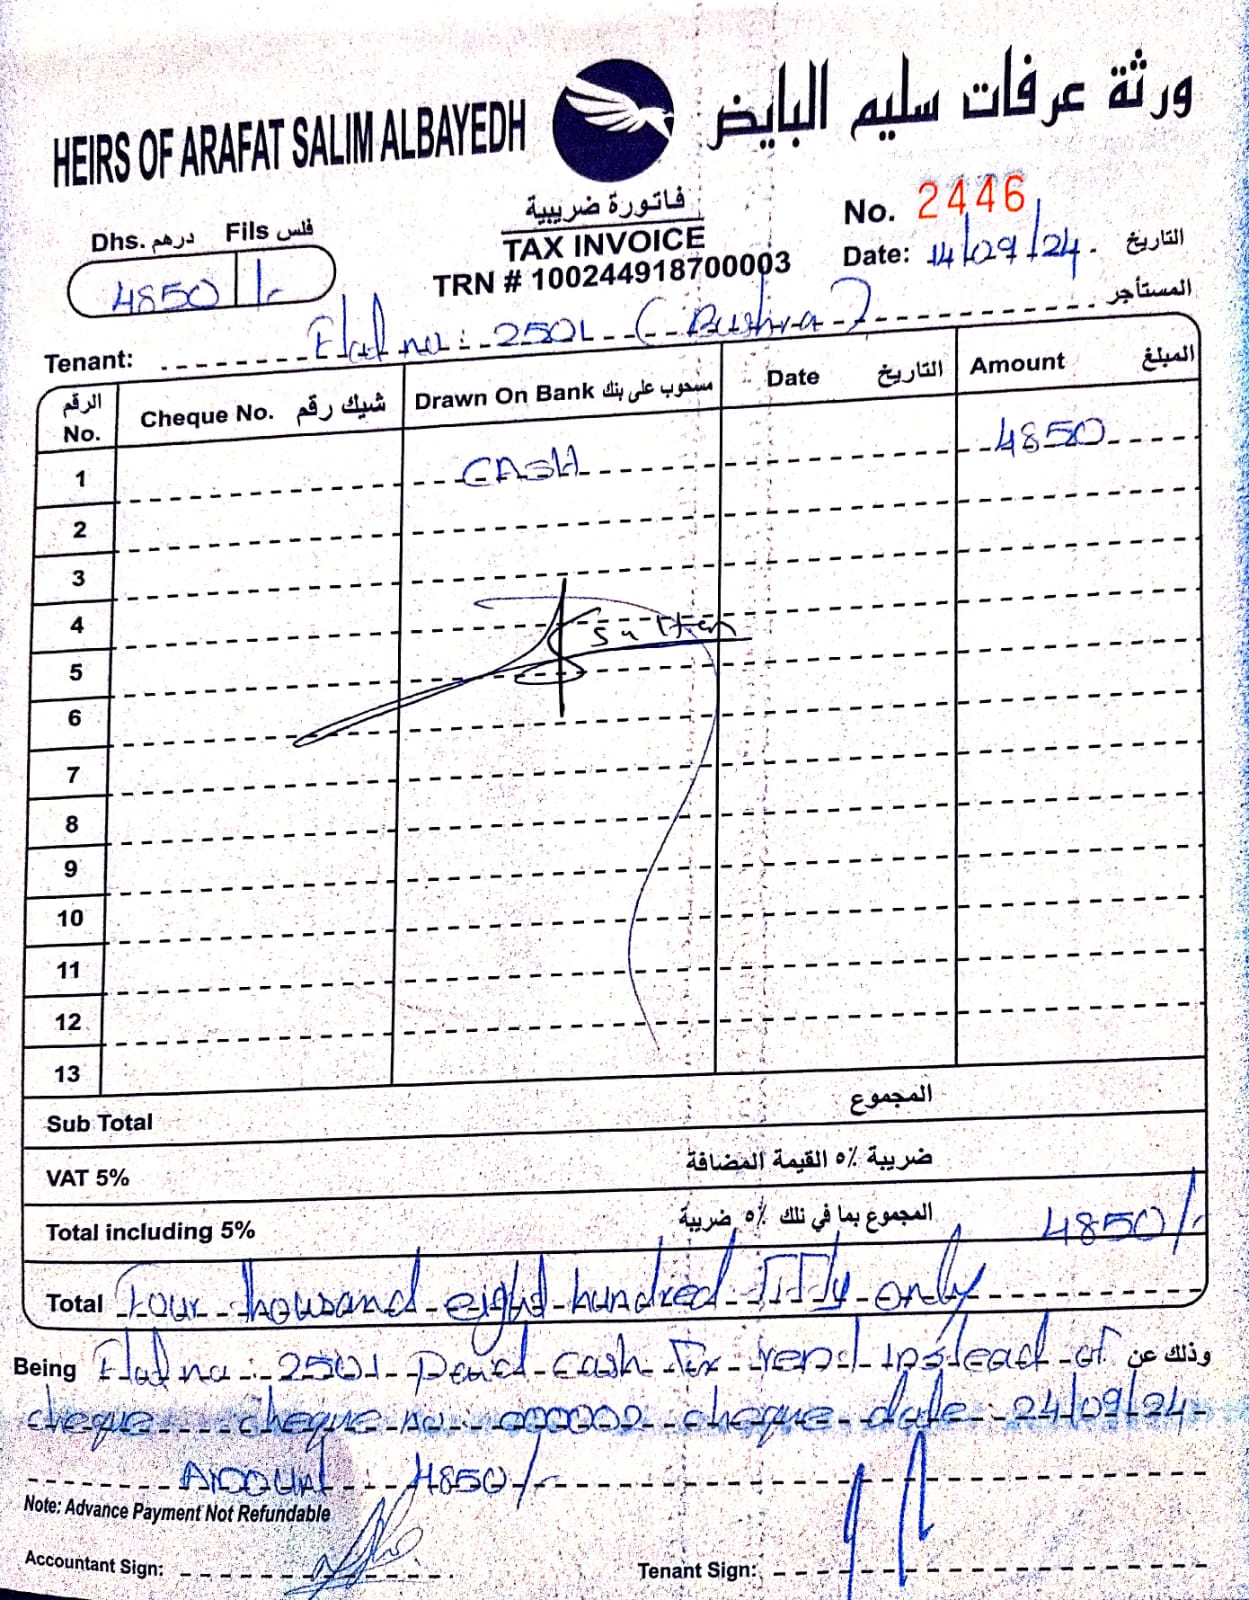 HEIRS OF ARAFAT SALIM ALBAYEDH
ورثة عرفات سليم البايض
فاتورة ضريبية
TAX INVOICE
TRN # 100244918700003
No. 2446
Date: 14/09/24. التاريخ
Dhs. درهم Fils فلس
4850 /-
Tenant: Flat no: 2501 (Bushra) المستأجر
الرقم No. Cheque No. شيك رقم Drawn On Bank مسحوب على بنك Date التاريخ Amount المبلغ
1 CASH 4850
2
3
4 Sultan
5
6
7
8
9
10
11
12
13
Sub Total المجموع
VAT 5% ضريبة ٥٪ القيمة المضافة
Total including 5% المجموع بما في ذلك ٥٪ ضريبة 4850/-
Total Four thousand eight hundred Fifty only
Being Flat no: 2501 Paid Cash For rent instead of وذلك عن
cheque cheque no: 000002 cheque date 24/09/24
Amount: 4850/-
Note: Advance Payment Not Refundable
Accountant Sign:
Tenant Sign: